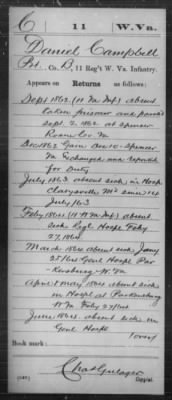 C | 11 | W.Va.
Daniel Campbell
Pvt. Co. B, 11 Reg't W. Va. Infantry.
Appears on Returns as follows:
Sept 1862 (11 Va Inf) absent
taken prisoner and paroled
Sept 2, 1862 at Spencer
Roane Co. Va
Dec 1862 Gain Dec 10 Spencer
Va Exchanged and reported
for Duty
July 1863 absent sick in Hosp
Clarysville Md since 14
July 163
Feby 1864 (11 W Va Inf) absent
sick Regl Hosp Feby
27, 1864
March 1864 absent sick
25/64 Genl Hosp Par
kersburg W. Va
April & May 1864 absent sick
in Hospl at Parkersburg
W Va Feby 27/64
June 1864 absent sick in
Genl Hospl
(over)
Book mark:
(546)
Copyist.